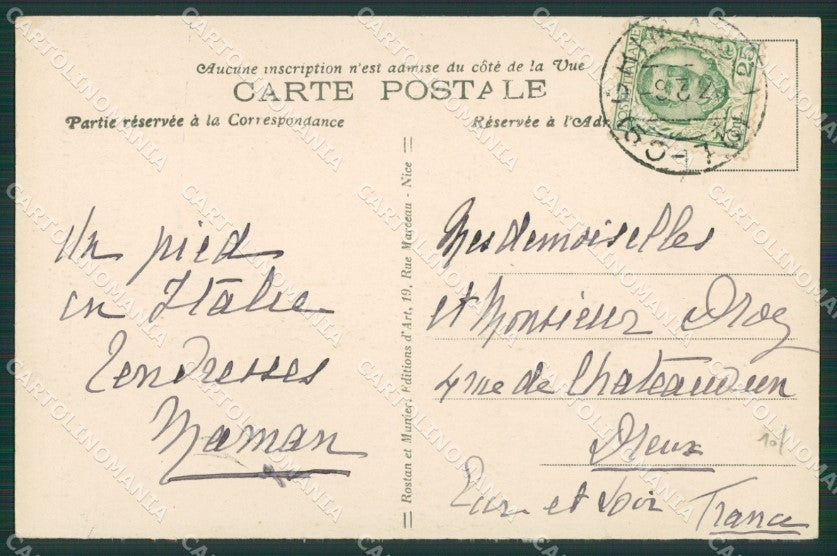 Aucune inscription n'est admise du côté de la Vue
CARTE POSTALE
Partie réservée à la Correspondance
Réservée à l'Adr
Un pied
en Italie
Tendresses
Maman
Rostan et Munier, Editions d'Art, 19, Rue Marceau - Nice
Mesdemoiselles
et Monsieur Droz
4 rue de Chateaudun
Dreux
Eure et Loir France
10/
25
CARTOLINOMANIA